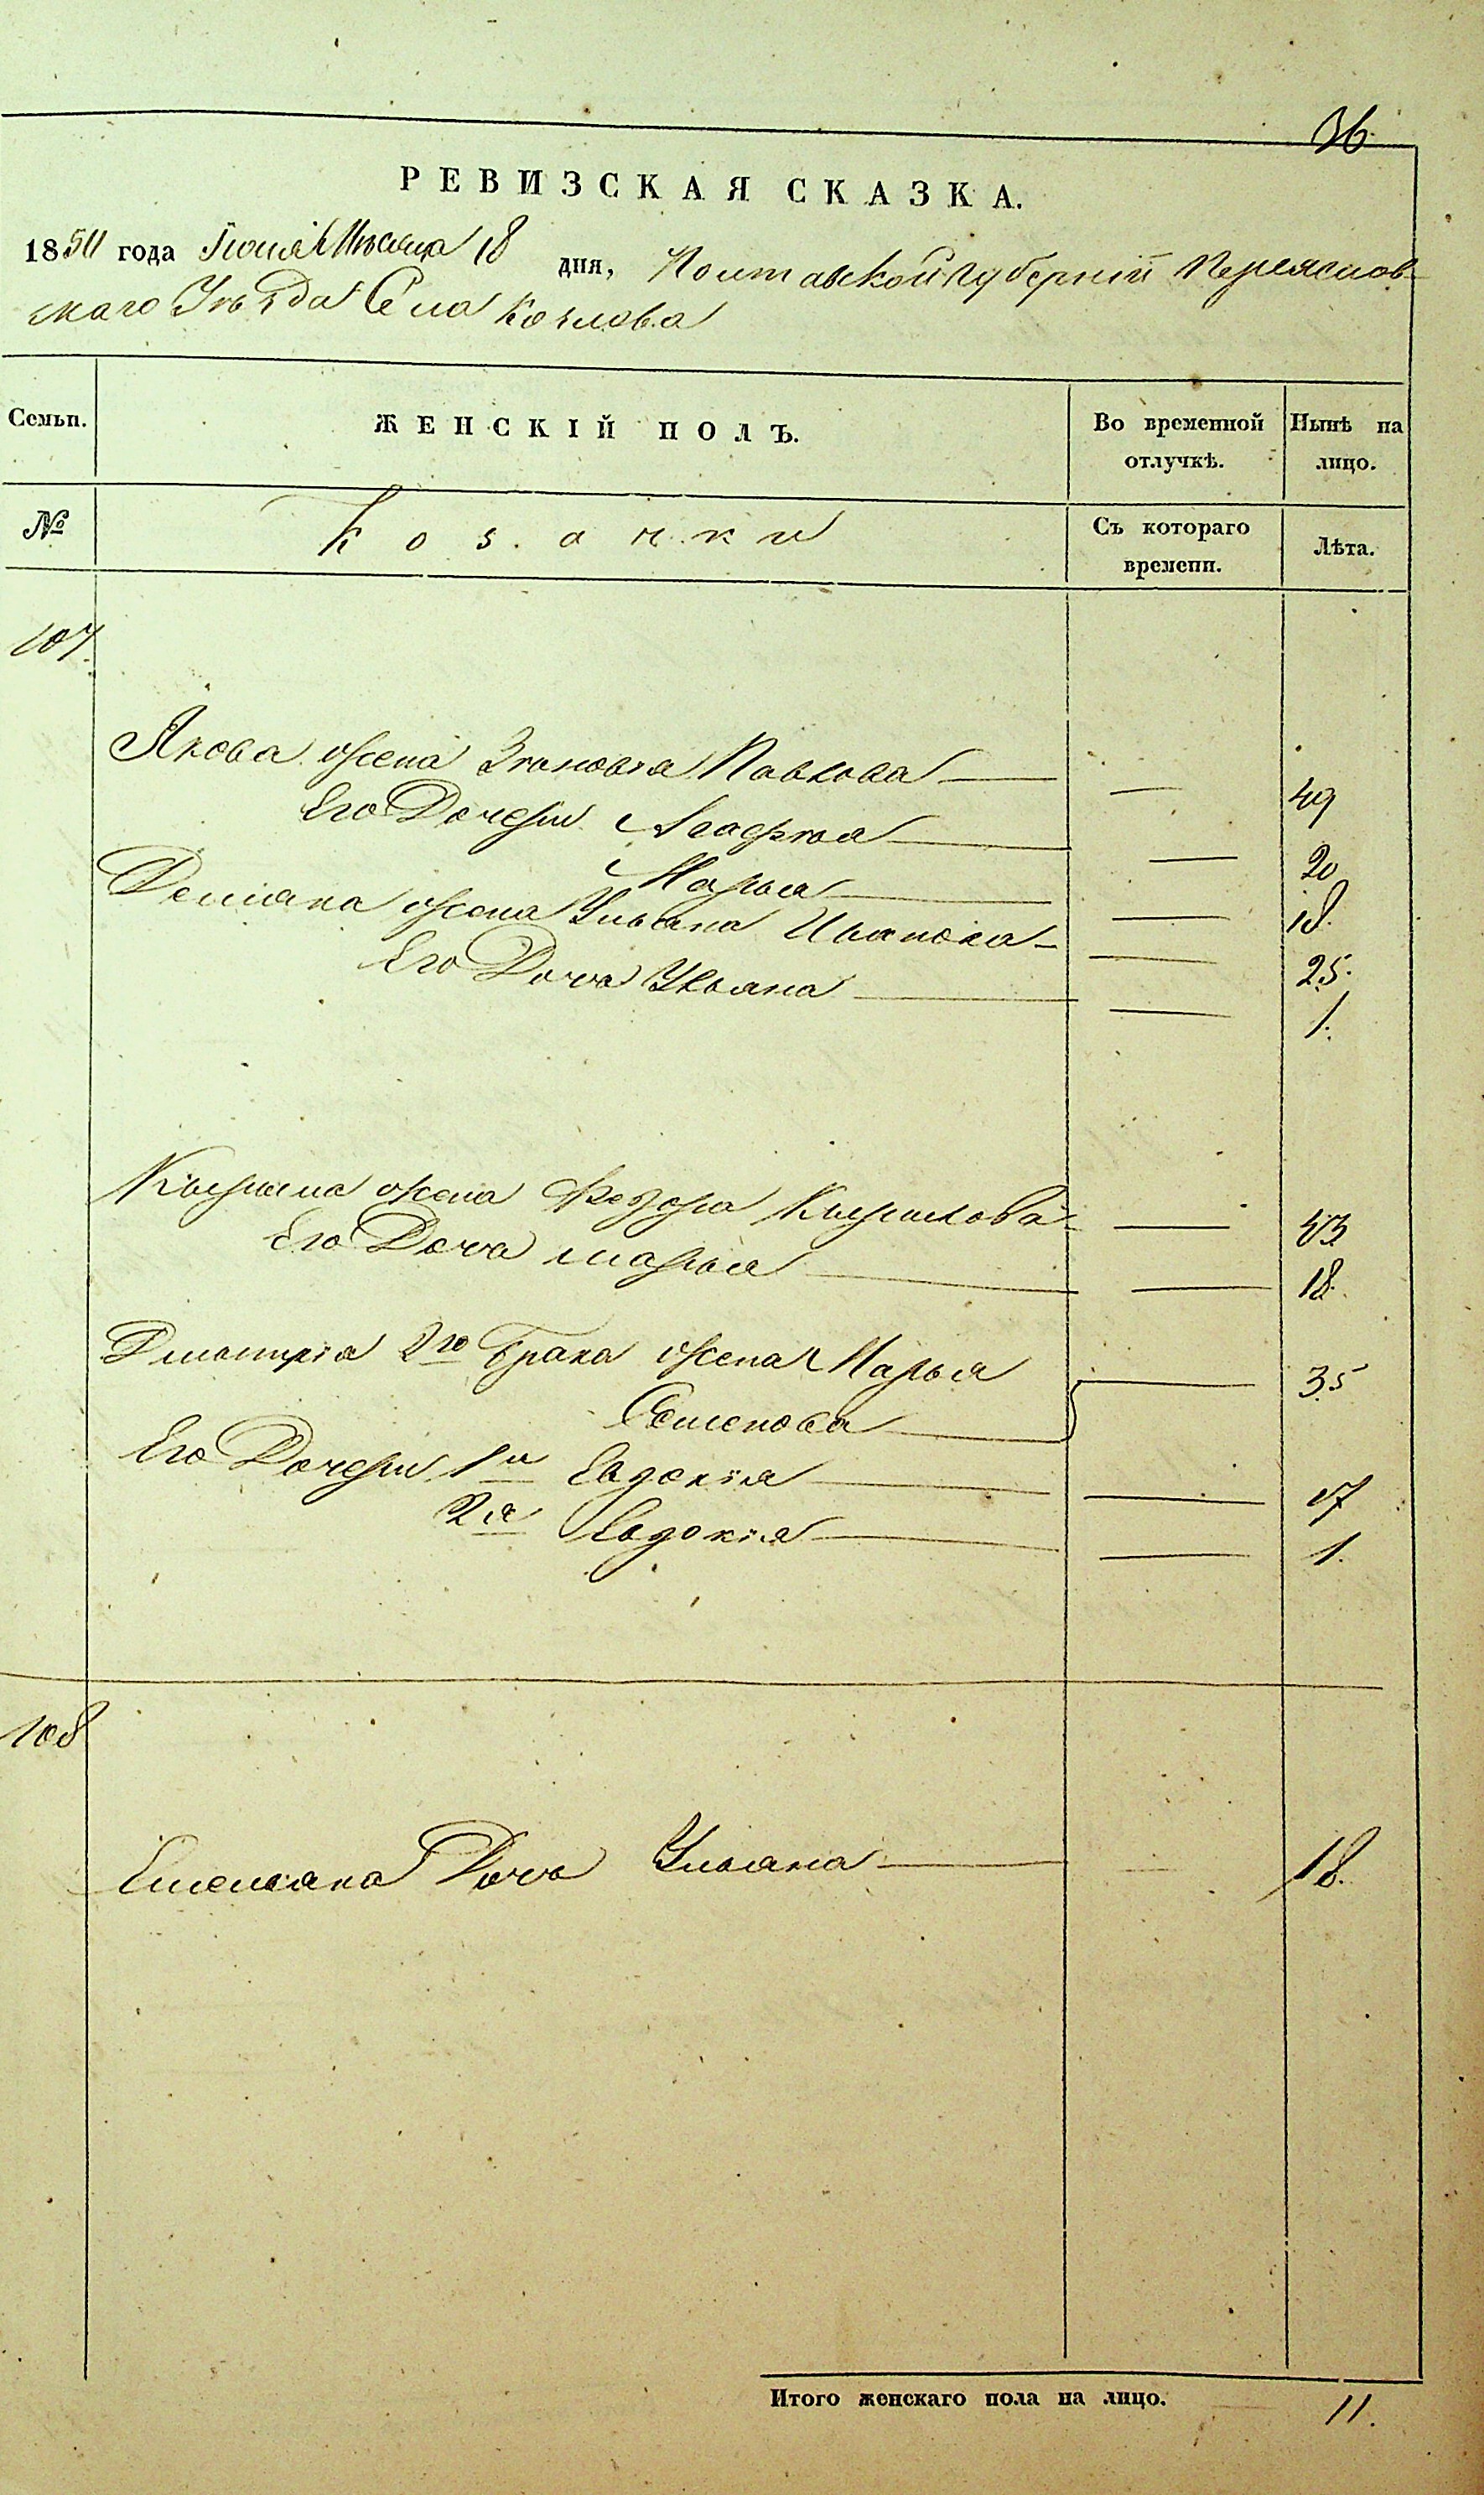 36.
РЕВИЗСКАЯ СКАЗКА.
1850 года Іюня Мѣсяца 18 дня, Полтавской Губерніи Переяслов-
скаго Уѣзда Села Козлова
Семьи. ЖЕНСКІЙ ПОЛЪ. Во временной отлучкѣ. Нынѣ на лицо.
№ Козачки Съ котораго времени. Лѣта.
107.
Якова жена Зѣновія Павлова — — 49
Его Дочери Агафія — — 20
Марья — — 18.
Демяна жена Ульяна Иванова — — 25.
Его Дочь Ульяна — — 1.
Кырила жена Федора Кырилова — — 43
Его Дочь марья — — 18.
Дмытрія 2го брака жена Марья — 35
Семенова —
Его Дочери 1я Евдокія — — 17
2я Евдокія — — 1.
108
Емеляна Дочь Ульяна — — 18.
Итого женскаго пола на лицо. 11.